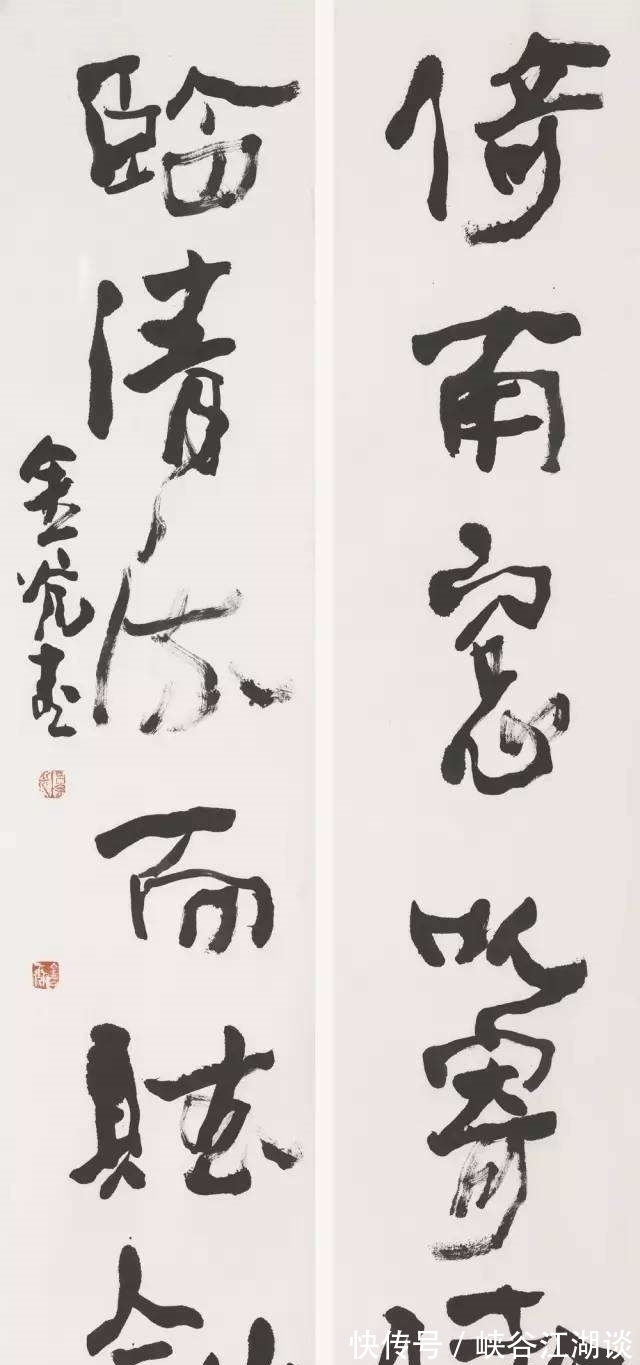 倚南窗以寄
臨清流而賦
快传号 / 峡谷江湖谈